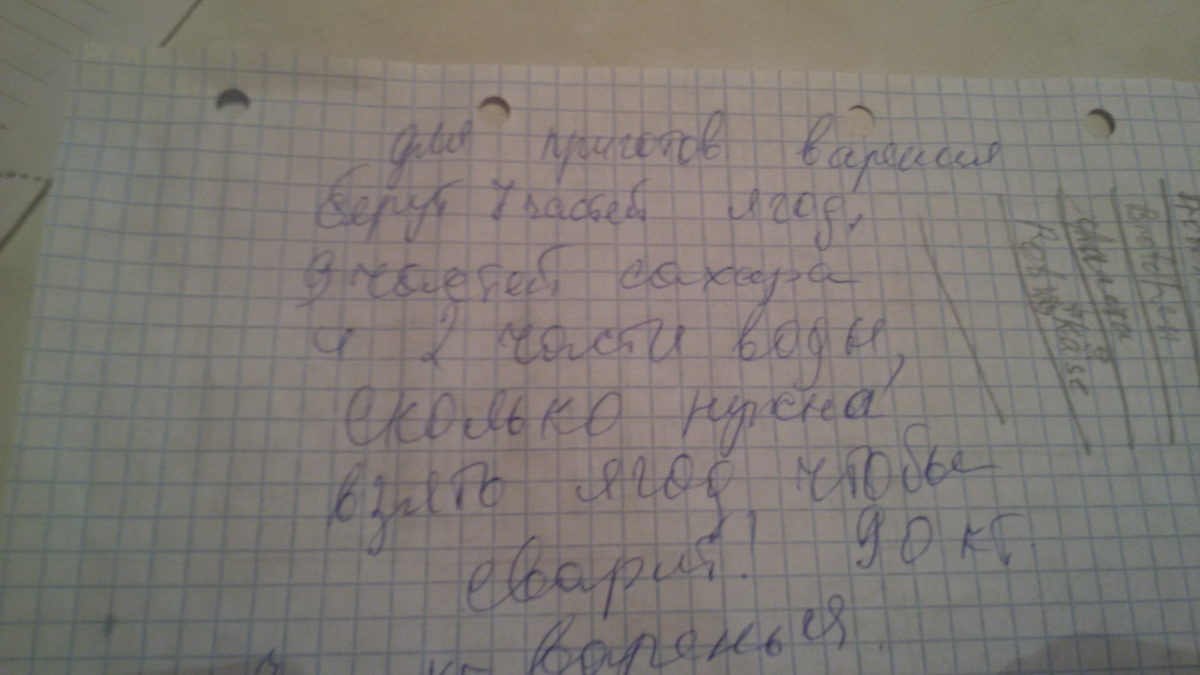 для приготов. варения
берут 7 частей ягод,
9 частей сахара
и 2 части воды,
сколько нужна
взять ягод чтобы
сварит! 90 кг.
варенья